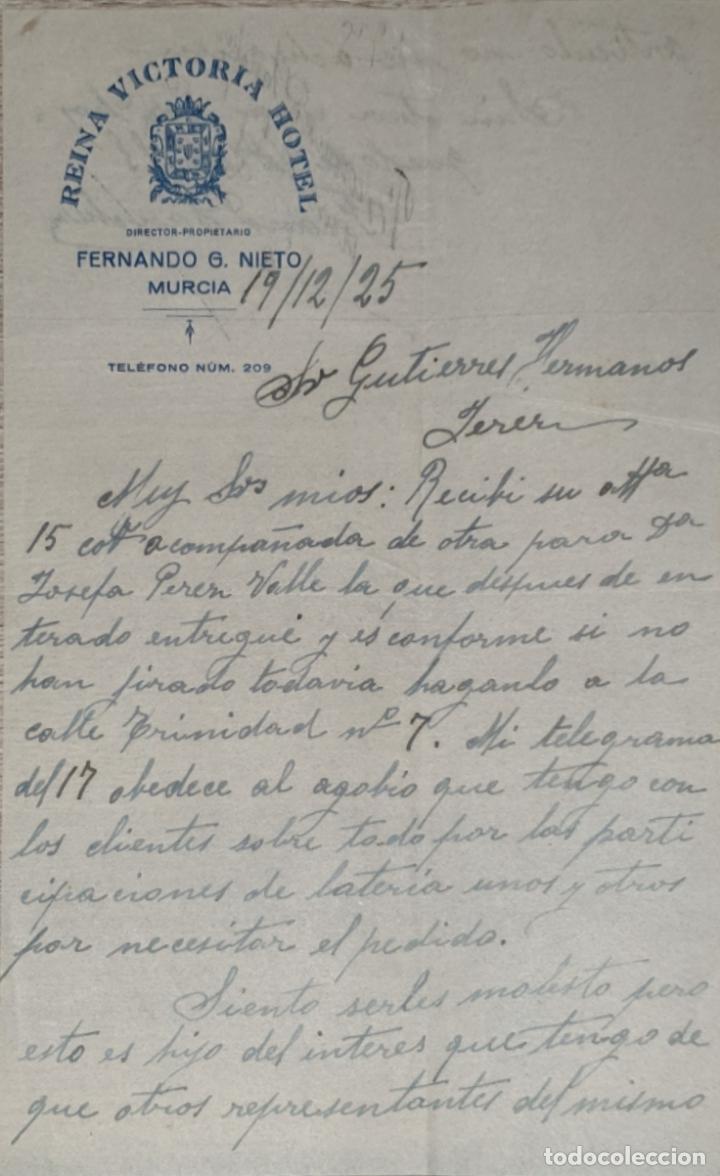 REINA VICTORIA HOTEL
DIRECTOR-PROPIETARIO
FERNANDO G. NIETO
MURCIA
19/12/25
TELÉFONO NÚM. 209
Sr Gutierres Hermanos
Jerez
Muy Srs mios: Recibi su atta
15 cote acompañada de otra para Da
Josefa Perez Valle la que despues de en
terado entregué y es conforme si no
han jirado todavia haganlo a la
calle Trinidad nº 7. Mi telegrama
del 17 obedece al agobio que tengo con
los clientes sobre todo por las parti
cipaciones de lateria unos y otros
por necesitar el pedido.
Siento serles molesto pero
esto es hijo del interes que tengo de
que otros representantes del mismo
todocoleccion.net